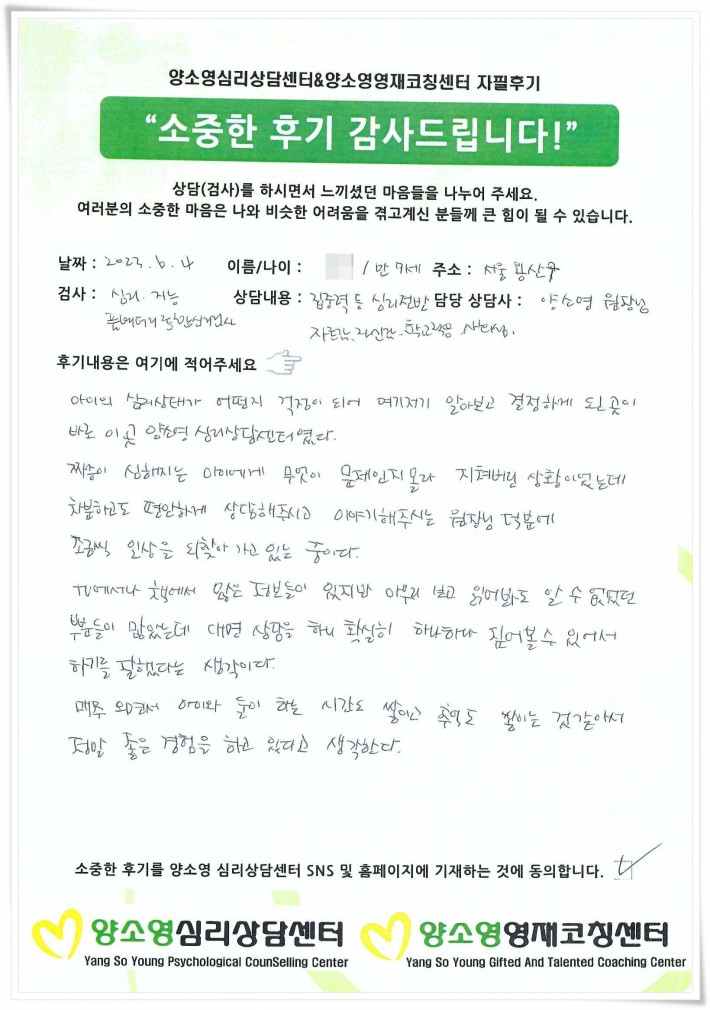 양소영심리상담센터&양소영영재코칭센터 자필후기
“소중한 후기 감사드립니다!”
상담(검사)를 하시면서 느끼셨던 마음들을 나누어 주세요.
여러분의 소중한 마음은 나와 비슷한 어려움을 겪고계신 분들께 큰 힘이 될 수 있습니다.
날짜 : 2023. 6. 4 이름/나이 : / 만 7세 주소 : 서울 용산구
검사 : 심리. 지능 상담내용 : 집중력 등 심리전반 담당 상담사 : 양소영 원장님
풀배터리 종합심리검사
자존감. 자신감. 학교적응 사회성.
후기내용은 여기에 적어주세요
아이의 심리상태가 어떤지 걱정이 되어 여기저기 알아보고 결정하게 된 곳이
바로 이곳 양소영 심리상담센터였다.
짜증이 심해지는 아이에게 무엇이 문제인지 몰라 지쳐버린 상황이었는데
차분하고도 편안하게 상담해주시고 이야기해주시는 원장님 덕분에
조금씩 일상을 되찾아 가고 있는 중이다.
TV에서나 책에서 많은 정보들이 있지만 아무리 보고 읽어봐도 알 수 없었던
부분들이 많았는데 대면 상담을 하니 확실히 하나하나 짚어볼 수 있어서
하기를 잘했다는 생각이다.
매주 오면서 아이와 둘이 하는 시간도 쌓이고 추억도 쌓이는 것 같아서
정말 좋은 경험을 하고 있다고 생각한다.
소중한 후기를 양소영 심리상담센터 SNS 및 홈페이지에 기재하는 것에 동의합니다.
양소영심리상담센터 양소영영재코칭센터
Yang So Young Psychological CounSelling Center Yang So Young Gifted And Talented Coaching Center